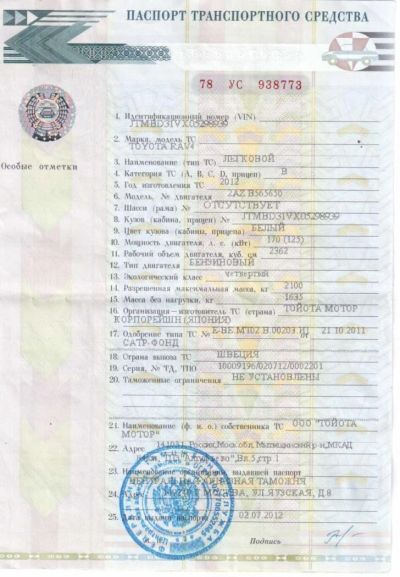 ПАСПОРТ ТРАНСПОРТНОГО СРЕДСТВА
78 УС 938773
Особые отметки
1. Идентификационный номер (VIN)
JTMBD31VX05298939
2. Марка, модель ТС
TOYOTA RAV4
3. Наименование (тип ТС) ЛЕГКОВОЙ
4. Категория ТС (A, B, C, D, прицеп) B
5. Год изготовления ТС 2012
6. Модель, № двигателя 2AZ B565650
7. Шасси (рама) № ОТСУТСТВУЕТ
8. Кузов (кабина, прицеп) № JTMBD31VX05298939
9. Цвет кузова (кабины, прицепа) БЕЛЫЙ
10. Мощность двигателя, л. с. (кВт) 170 (125)
11. Рабочий объем двигателя, куб. см 2362
12. Тип двигателя БЕНЗИНОВЫЙ
13. Экологический класс четвертый
14. Разрешенная максимальная масса, кг 2100
15. Масса без нагрузки, кг 1635
16. Организация—изготовитель ТС (страна) ТОЙОТА МОТОР
КОРПОРЕЙШН (ЯПОНИЯ)
17. Одобрение типа ТС № Е-BE.MT02.B.00203.И1 от 21.10.2011
САТР-ФОНД
18. Страна вывоза ТС ШВЕЦИЯ
19. Серия, № ТД, ТПО 10009196/020712/0002201
20. Таможенные ограничения НЕ УСТАНОВЛЕНЫ
21. Наименование (ф. и. о.) собственника ТС ООО "ТОЙОТА
МОТОР"
22. Адрес 141031, Россия, Моск.обл, Мытищинский р-н, МКАД
Вл.5, стр.1
23. Наименование организации, выдавшей паспорт
ТАМОЖНЯ
24. Адрес МОСКВА, УЛ.ЯУЗСКАЯ, Д.8
25. Дата выдачи паспорта 02.07.2012
Подпись